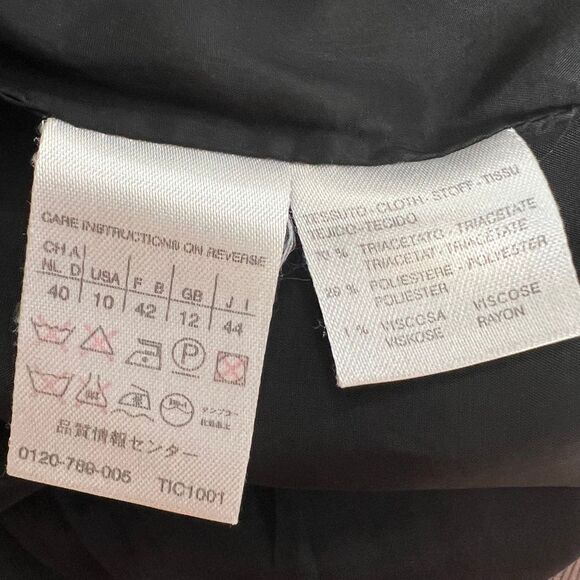 CARE INSTRUCTIONS ON REVERSE
CH A
NL D USA F B GB J I
40 10 42 12 44
P
タンブラー
品質情報センター
0120-789-005 TIC1001
TESSUTO - CLOTH - STOFF - TISSU
TEJIDO - TECIDO
% TRIACETATO - TRIACETATE
TRIACETAT - TRIACETATE
% POLIESTERE - POLYESTER
POLIESTER
1 % VISCOSA VISCOSE
VISKOSE RAYON